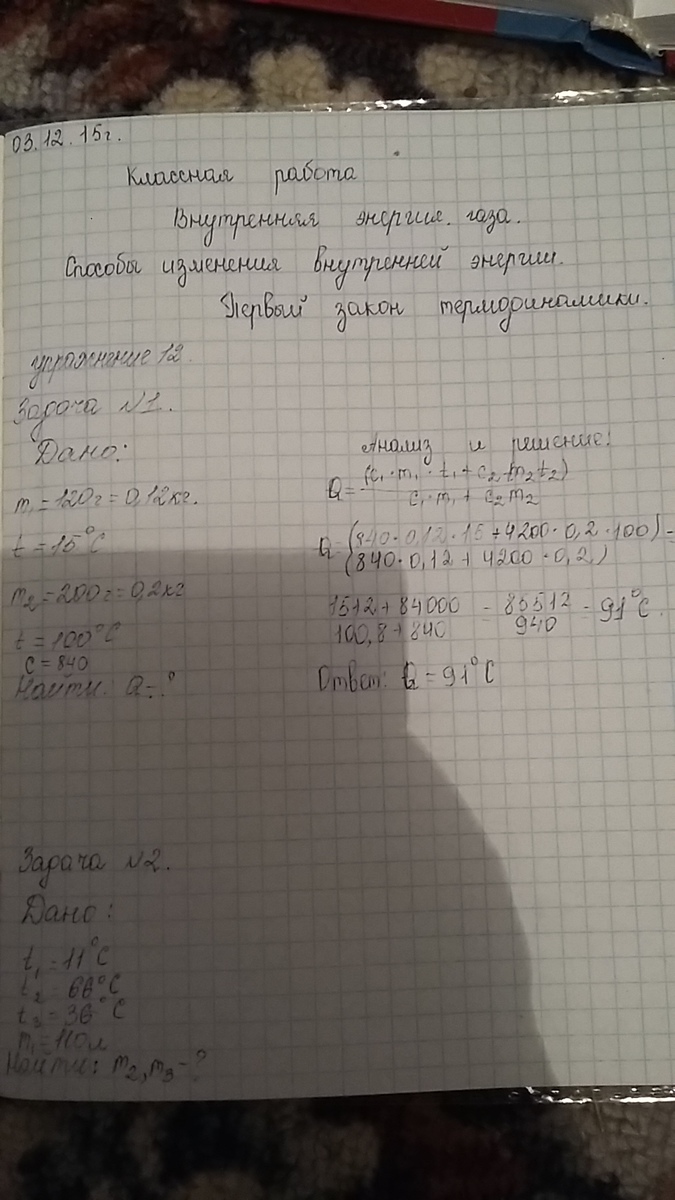 03.12.15г.
Классная работа
Внутренняя энергия газа.
Способы изменения внутренней энергии.
Первый закон термодинамики.
упражнение 12.
Задача №1.
Дано:
m₁=120г=0,12кг.
t=15°C
m₂=200г=0,2кг
t=100°C
c=840
Найти: Q-?
Анализ и решение:
Q=(c₁·m₁·t₁+c₂·m₂t₂)
c₁·m₁+c₂m₂
Q=(840·0,12·15+4200·0,2·100)=
(840·0,12+4200·0,2)
1512+84000 = 85512 = 91°C.
100,8+840 940
Ответ: Q=91°C
Задача №2.
Дано:
t₁=11°C
t₂=66°C
t₃=36°C
m₁=110л
Найти: m₂,m₃-?